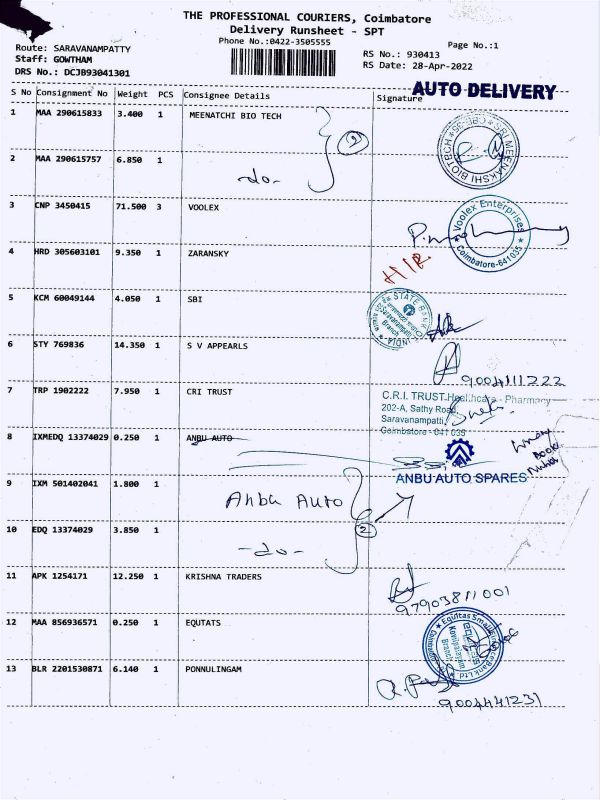 THE PROFESSIONAL COURIERS, Coimbatore
Delivery Runsheet - SPT
Phone No.:0422-3505555
Page No.:1
Route: SARAVANAMPATTY
Staff: GOWTHAM
DRS No.: DCJB93041301
RS No.: 930413
RS Date: 28-Apr-2022
AUTO DELIVERY
S No Consignment No Weight PCS Consignee Details Signature
1 MAA 290615833 3.400 1 MEENATCHI BIO TECH
2
SRI MEENAKSHI BIOTECH
2 MAA 290615757 6.850 1
-do-
3 CNP 3450415 71.500 3 VOOLEX
Voolex Enterprises
Coimbatore-641 035
4 HRD 305603101 9.350 1 ZARANSKY
H/R
5 KCM 60049144 4.050 1 SBI
STATE BANK OF INDIA
Branch
6 STY 769836 14.350 1 S V APPEARLS
9004111222
7 TRP 1902222 7.950 1 CRI TRUST
C.R.I. TRUST Healthcare - Pharmacy
202-A, Sathy Road,
Saravanampatti,
Coimbatore - 641 035
8 IXMEDQ 13374029 0.250 1 ANBU AUTO
ANBU AUTO SPARES
9 IXM 501402041 1.800 1
Anbu Auto
2
10 EDQ 13374029 3.850 1
-do-
11 APK 1254171 12.250 1 KRISHNA TRADERS
97903811001
12 MAA 856936571 0.250 1 EQUTATS
Equitas Small Finance Bank Ltd.
Kovilpalayam
Branch
13 BLR 2201530871 6.140 1 PONNULINGAM
9004441231